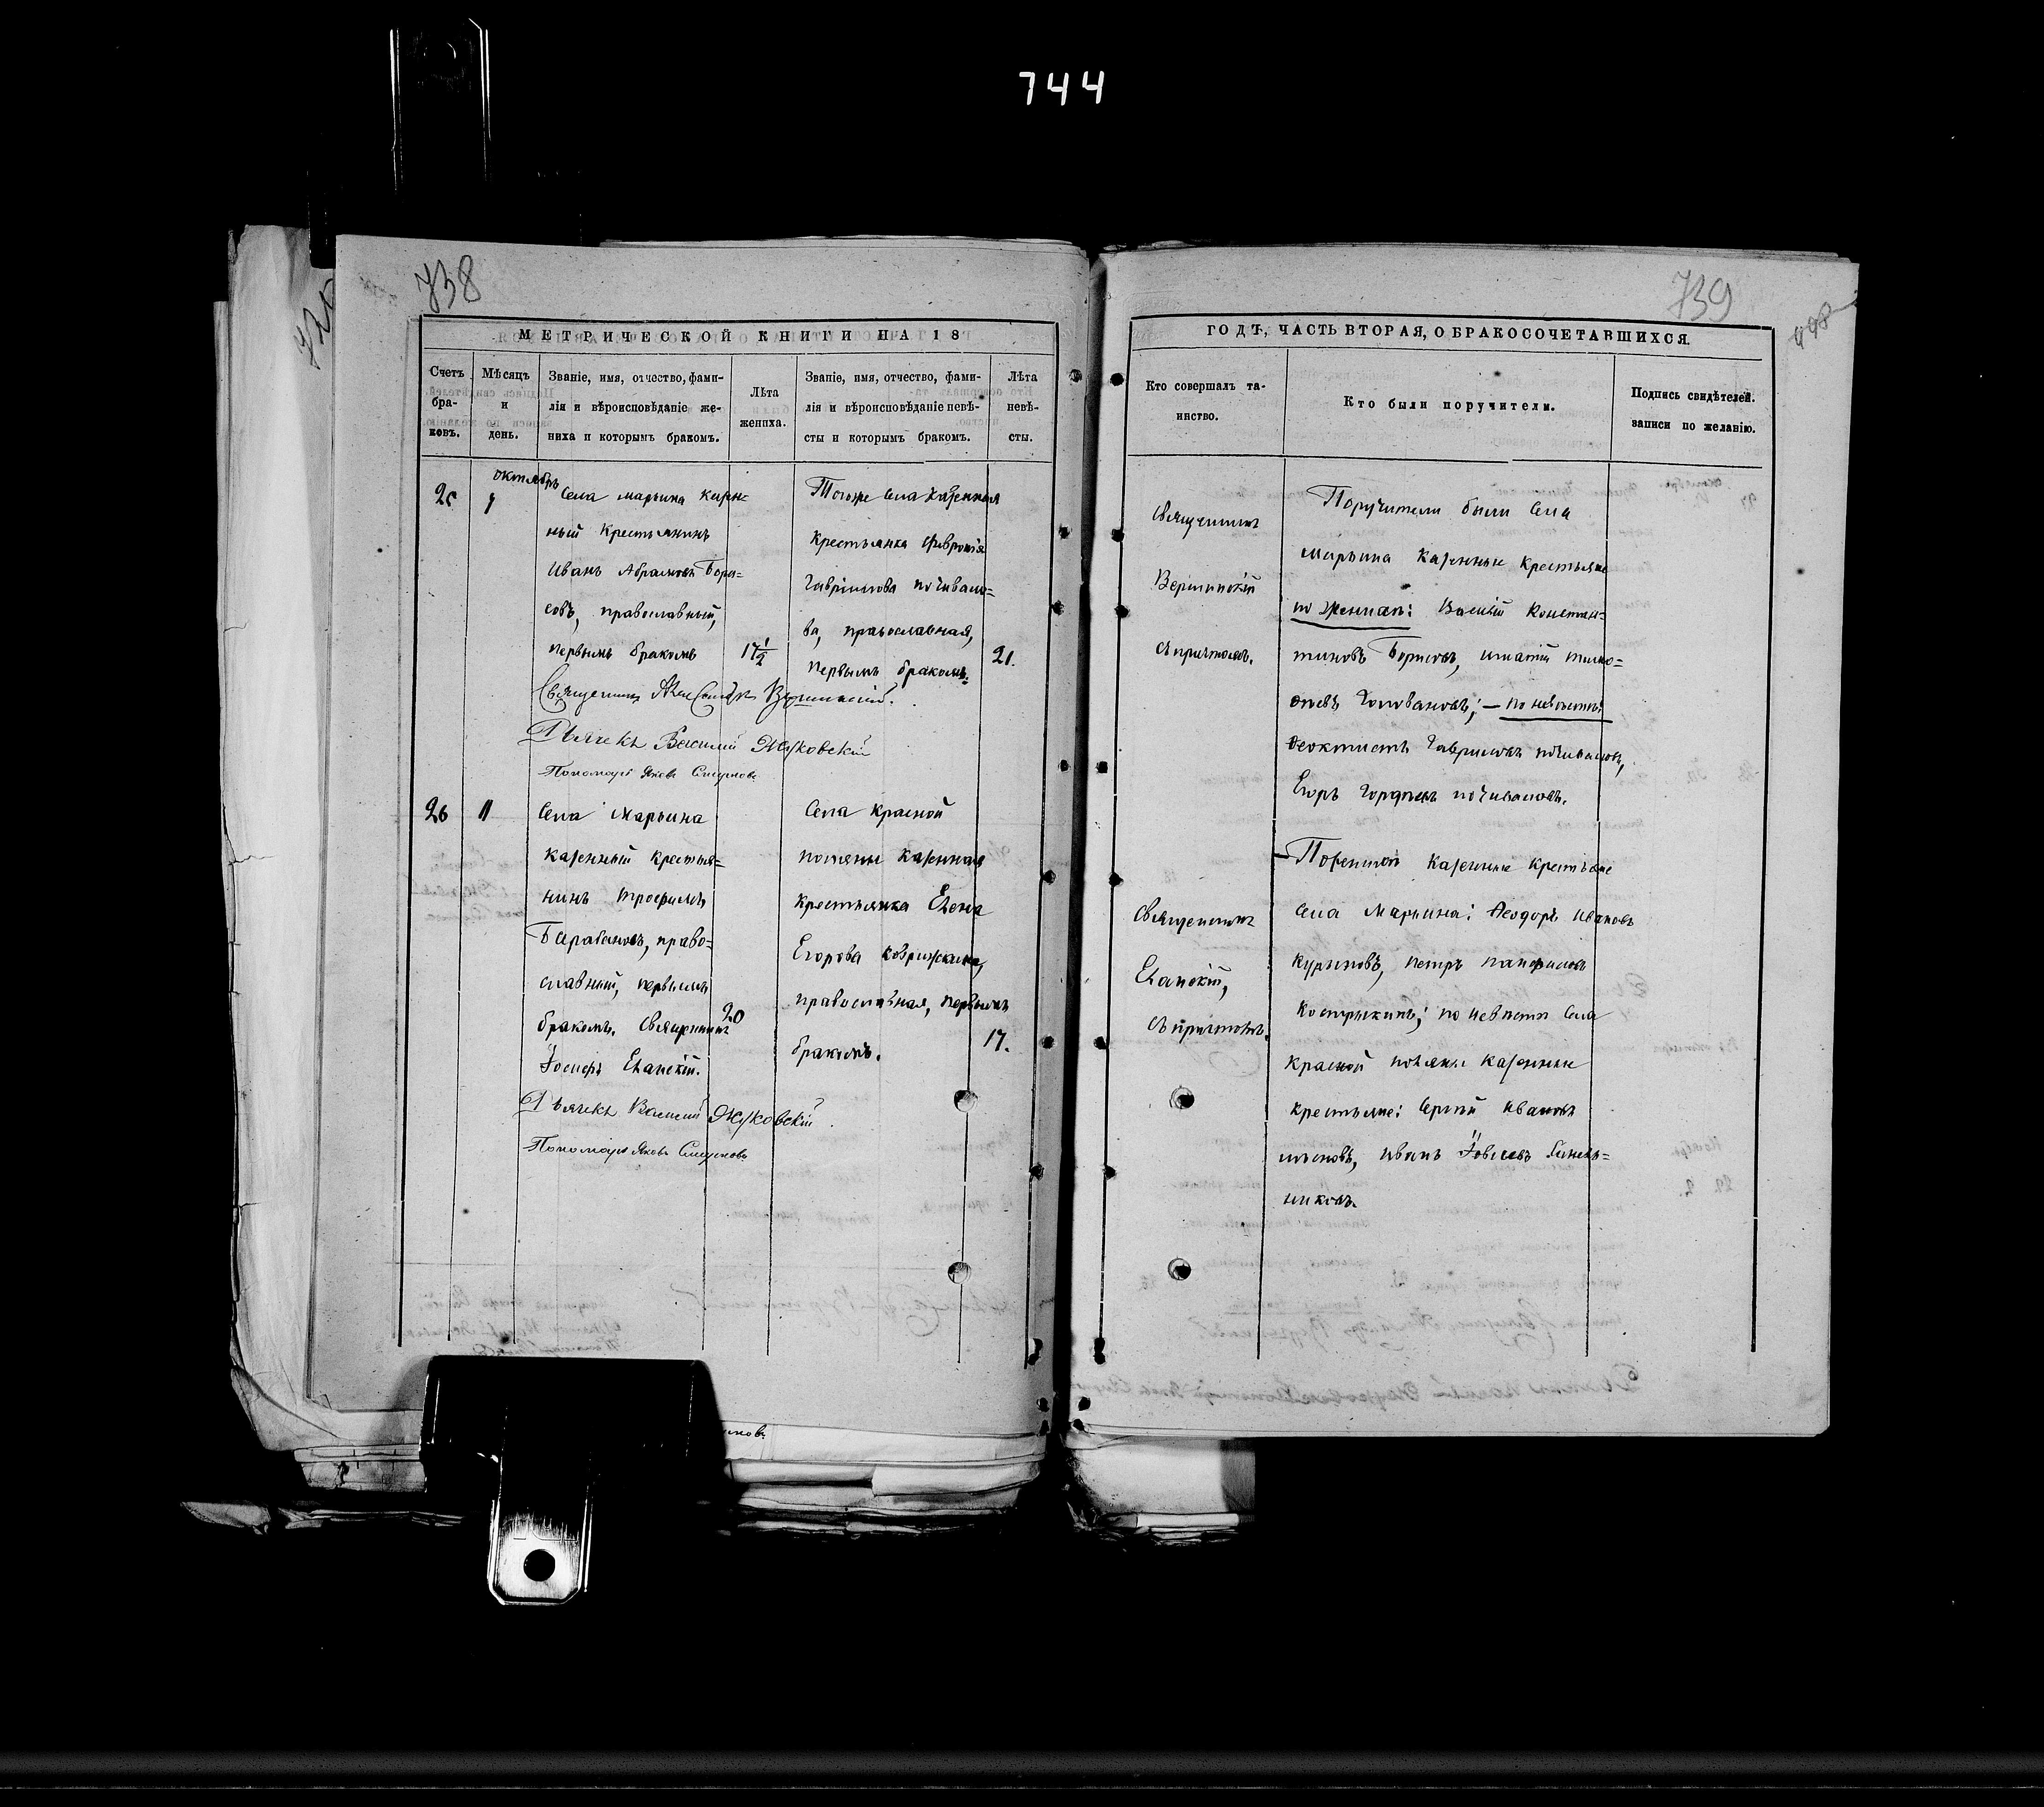 744
738
МЕТРИЧЕСКОЙ КНИГИ НА 18
Счетъ браковъ.
Мѣсяцъ и день.
Званіе, имя, отчество, фамилія и вѣроисповѣданіе жениха и которымъ бракомъ.
Лѣта жениха.
Званіе, имя, отчество, фамилія и вѣроисповѣданіе невѣсты и которымъ бракомъ.
Лѣта невѣсты.
октябрь
Села Марьина казен-
ный крестьянинъ
Иванъ Абрамовъ Бори-
совъ, православный,
первымъ бракомъ
17 1/2
Тогоже села казенная
крестьянка Февронія
Гавріилова Почивало-
ва, православная,
первымъ бракомъ.
21.
Священникъ Александръ Вершинскій.
Дьячекъ Василий Жуковскій
Пономарь Яковъ Смирновъ
26
11
Села Марьина
казенный крестья-
нинъ Трофимъ
Барабановъ, право-
славный, первымъ
бракомъ. Священникъ
Іосифъ Еланскій.
20
Села Красной
поляны казенная
крестьянка Елена
Егорова Коврижкина,
православная, первымъ
бракомъ.
17.
Дьячекъ Василий Жуковскій
Пономарь Яковъ Смирновъ
739
448
ГОДЪ, ЧАСТЬ ВТОРАЯ, О БРАКОСОЧЕТАВШИХСЯ.
Кто совершалъ таинство.
Кто были поручители.
Подпись свидѣтелей записи по желанію.
Священникъ
Вершинскій
съ причтомъ.
Поручители были села
Марьина казенные крестьяне
по женихѣ: Василій Констан-
тиновъ Борисовъ, Игнатій Тимо-
феевъ Головановъ; – по невѣстѣ:
Феоктистъ Гавриловъ Почиваловъ,
Егоръ Гордѣевъ Почиваловъ.
Священникъ
Еланскій,
съ причтомъ.
казенные крестьяне
села Марьина: Феодоръ Ивановъ
Куриновъ, Петръ Панфиловъ
Кострыкинъ; по невѣстѣ села
Красной поляны казенные
крестьяне: Сергій Ивановъ
Иванъ Іовлевъ
никовъ.